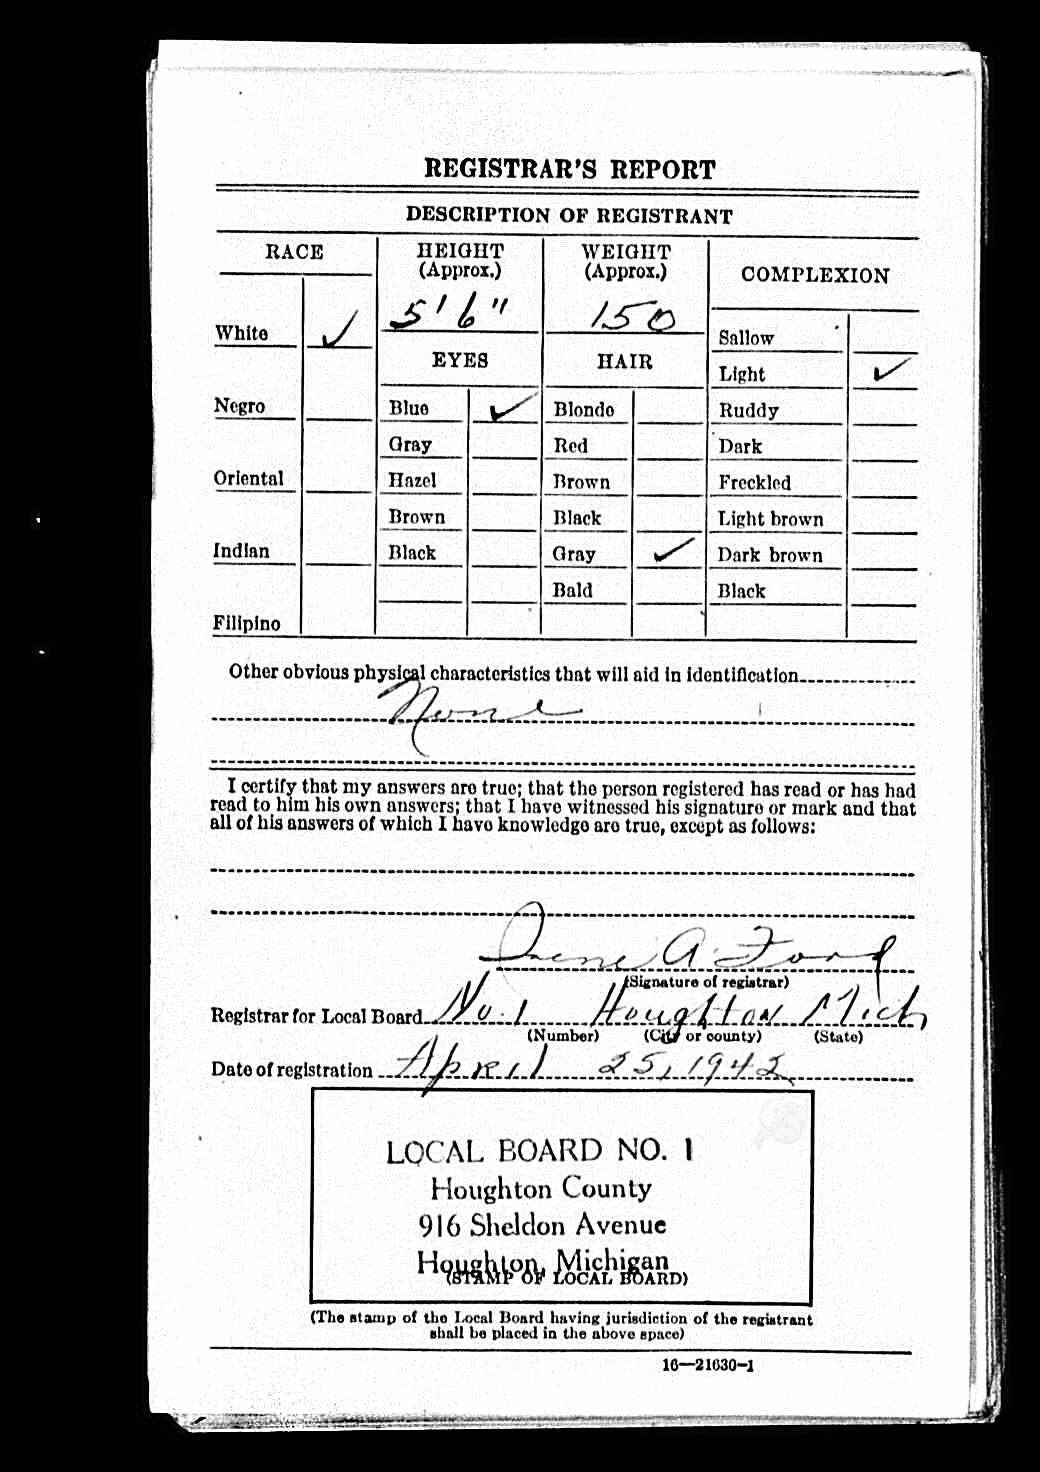 REGISTRAR'S REPORT
DESCRIPTION OF REGISTRANT
RACE
HEIGHT
(Approx.)
WEIGHT
(Approx.)
COMPLEXION
5' 6"
150
White ✓
EYES
HAIR
Sallow
Light ✓
Negro
Blue ✓
Blonde
Ruddy
Gray
Red
Dark
Oriental
Hazel
Brown
Freckled
Brown
Black
Light brown
Indian
Black
Gray ✓
Dark brown
Bald
Black
Filipino
Other obvious physical characteristics that will aid in identification
None
I certify that my answers are true; that the person registered has read or has had
read to him his own answers; that I have witnessed his signature or mark and that
all of his answers of which I have knowledge are true, except as follows:
Irene A. Ford
(Signature of registrar)
Registrar for Local Board No. 1 Houghton Mich
(Number) (City or county) (State)
Date of registration April 25, 1942
LOCAL BOARD NO. 1
Houghton County
916 Sheldon Avenue
Houghton, Michigan
(STAMP OF LOCAL BOARD)
(The stamp of the Local Board having jurisdiction of the registrant
shall be placed in the above space)
16—21630-1